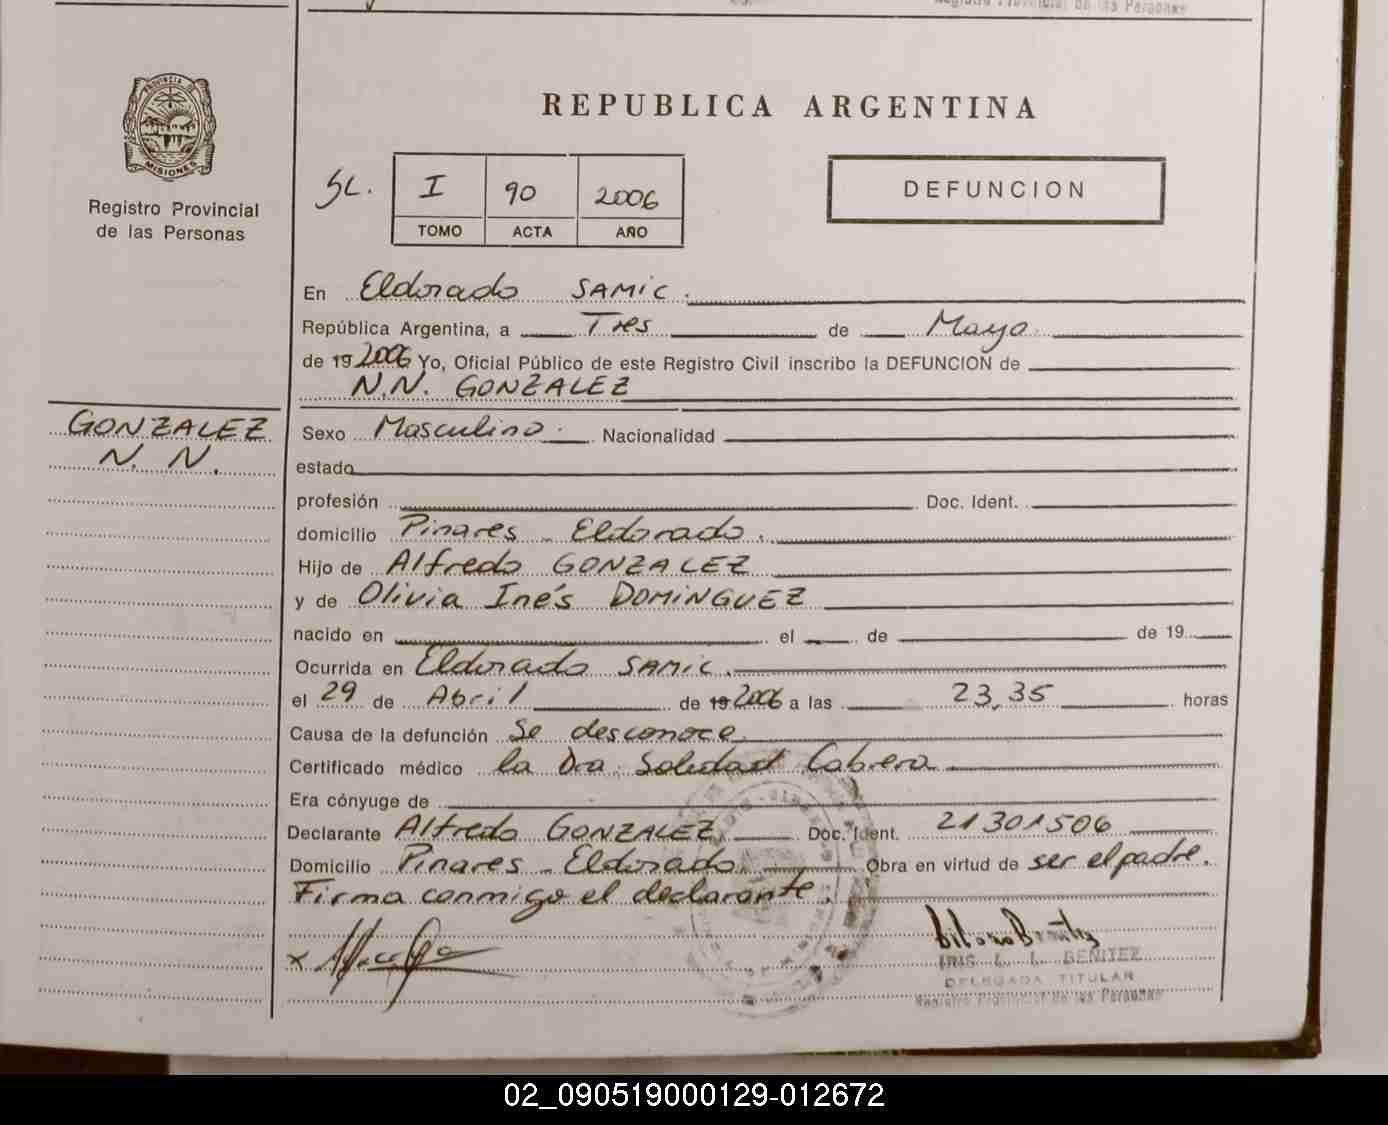 Registro Provincial de las Personas
PROVINCIA DE
MISIONES
Registro Provincial
de las Personas
REPUBLICA ARGENTINA
SC. I 90 2006
TOMO ACTA AÑO
DEFUNCION
En Eldorado SAMIC.
República Argentina, a Tres de Mayo
de 19 2006 Yo, Oficial Público de este Registro Civil inscribo la DEFUNCION de
N.N. GONZALEZ
GONZALEZ
N. N.
Sexo Masculino. Nacionalidad
estado
profesión Doc. Ident.
domicilio Pinares - Eldorado.
Hijo de Alfredo GONZALEZ
y de Olivia Inés DOMINGUEZ
nacido en el de de 19
Ocurrida en Eldorado SAMIC.
el 29 de Abril de 19 2006 a las 23,35 horas
Causa de la defunción Se desconoce
Certificado médico la Dra. Soledad Cabrera
Era cónyuge de
Declarante Alfredo GONZALEZ Doc. Ident. 21301506
Domicilio Pinares - Eldorado. Obra en virtud de ser el padre.
Firma conmigo el declarante.
x
IRIS L. I. BENITEZ
DELEGADA TITULAR
Registro Provincial de las Personas
02_090519000129-012672